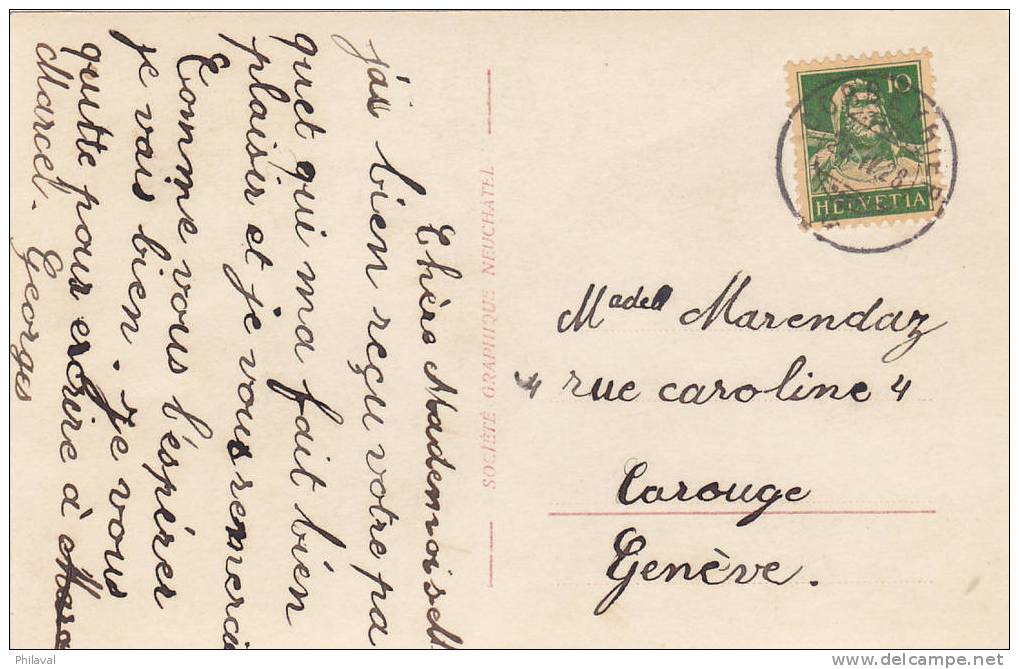 Chère Mademoisell
jai bien reçu votre pa
quet qui ma fait bien
plaisir et je vous remercie
Comme vous l'espérier
je vais bien. Je vous
quitte pour ecrire à
Marcel. Georges
SOCIÉTÉ GRAPHIQUE NEUCHÂTEL
10
HELVETIA
Madel Marendaz
4 rue caroline 4
Carouge
Genève.
Philaval
www.delcampe.net